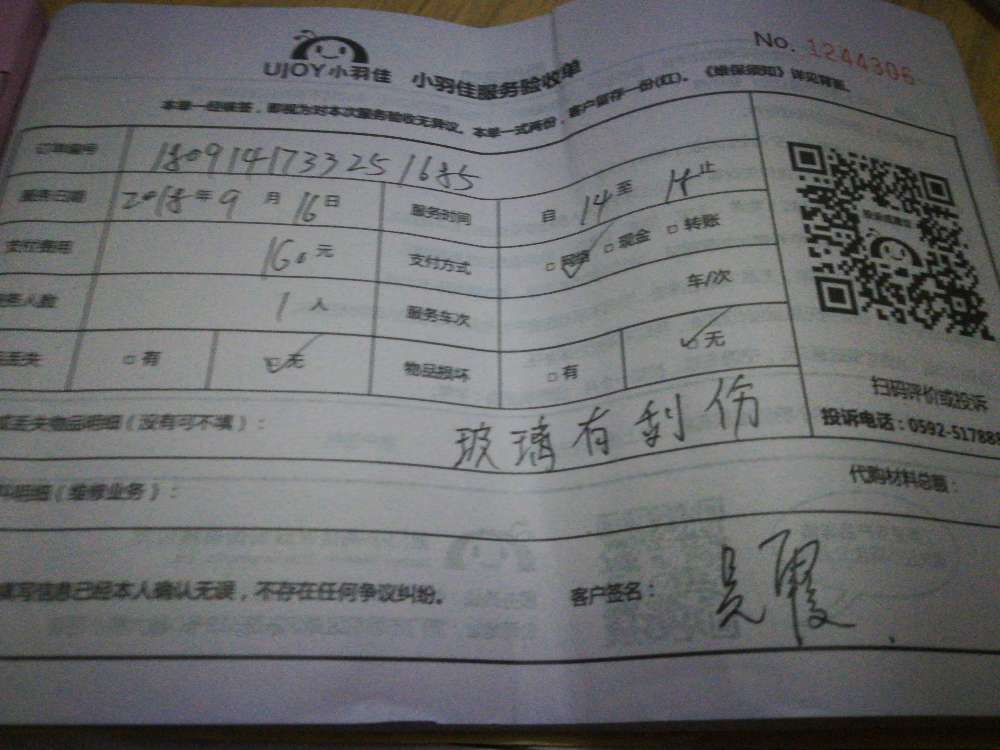 No. 1244306
UJOY小羽佳 小羽佳服务验收单
本单一经签，即视为对本次服务验收无异议。本单一式两份，客户留存一份(红)。《维保须知》详见背面。
订单编号 180914173325 1685
服务日期 2018年9月16日 服务时间 自14至14止
支付费用 160元 支付方式 □ □现金 □转账
人数 1人 服务车次 车/次
丢失 □有 □无 物品损坏 □有 □无
扫码评价或投诉
丢失物品明细（没有可不填）： 玻璃有刮伤
投诉电话：0592-51788
明细（维修业务）： 代购材料总额：
填写信息已经本人确认无误，不存在任何争议纠纷。 客户签名： 吴霞